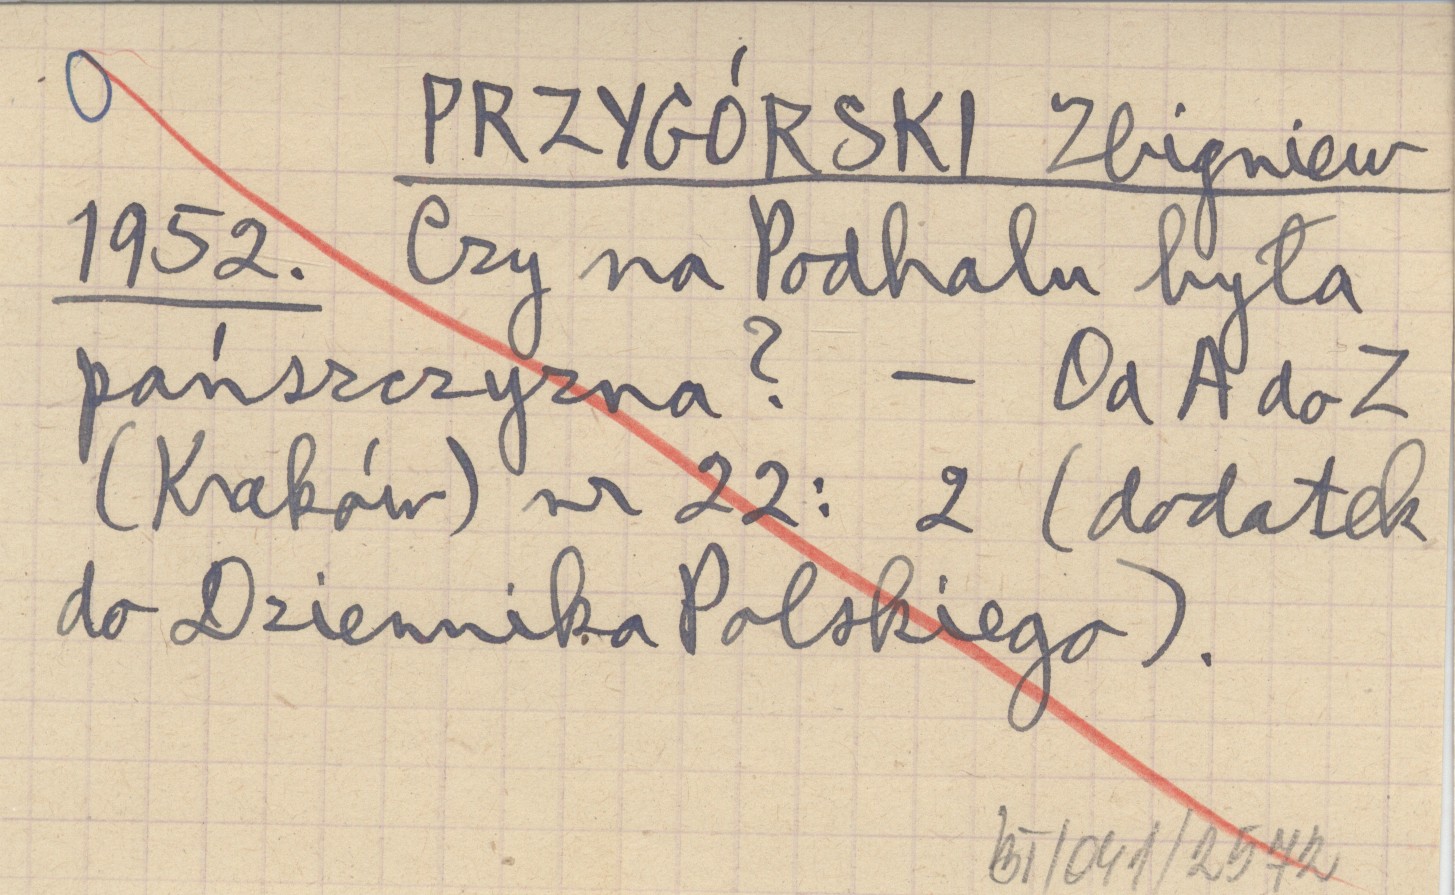 PRZYGÓRSKI Zbigniew
1952. Czy na Podhalu była
pańszczyzna? — Od A do Z
(Kraków) nr 22: 2 (dodatek
do Dziennika Polskiego).
BI/041/2572